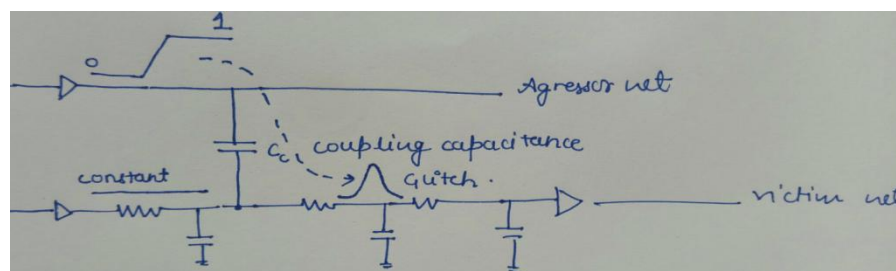 1
0
Agressor net
Cc coupling capacitance
constant
Glitch.
victim net